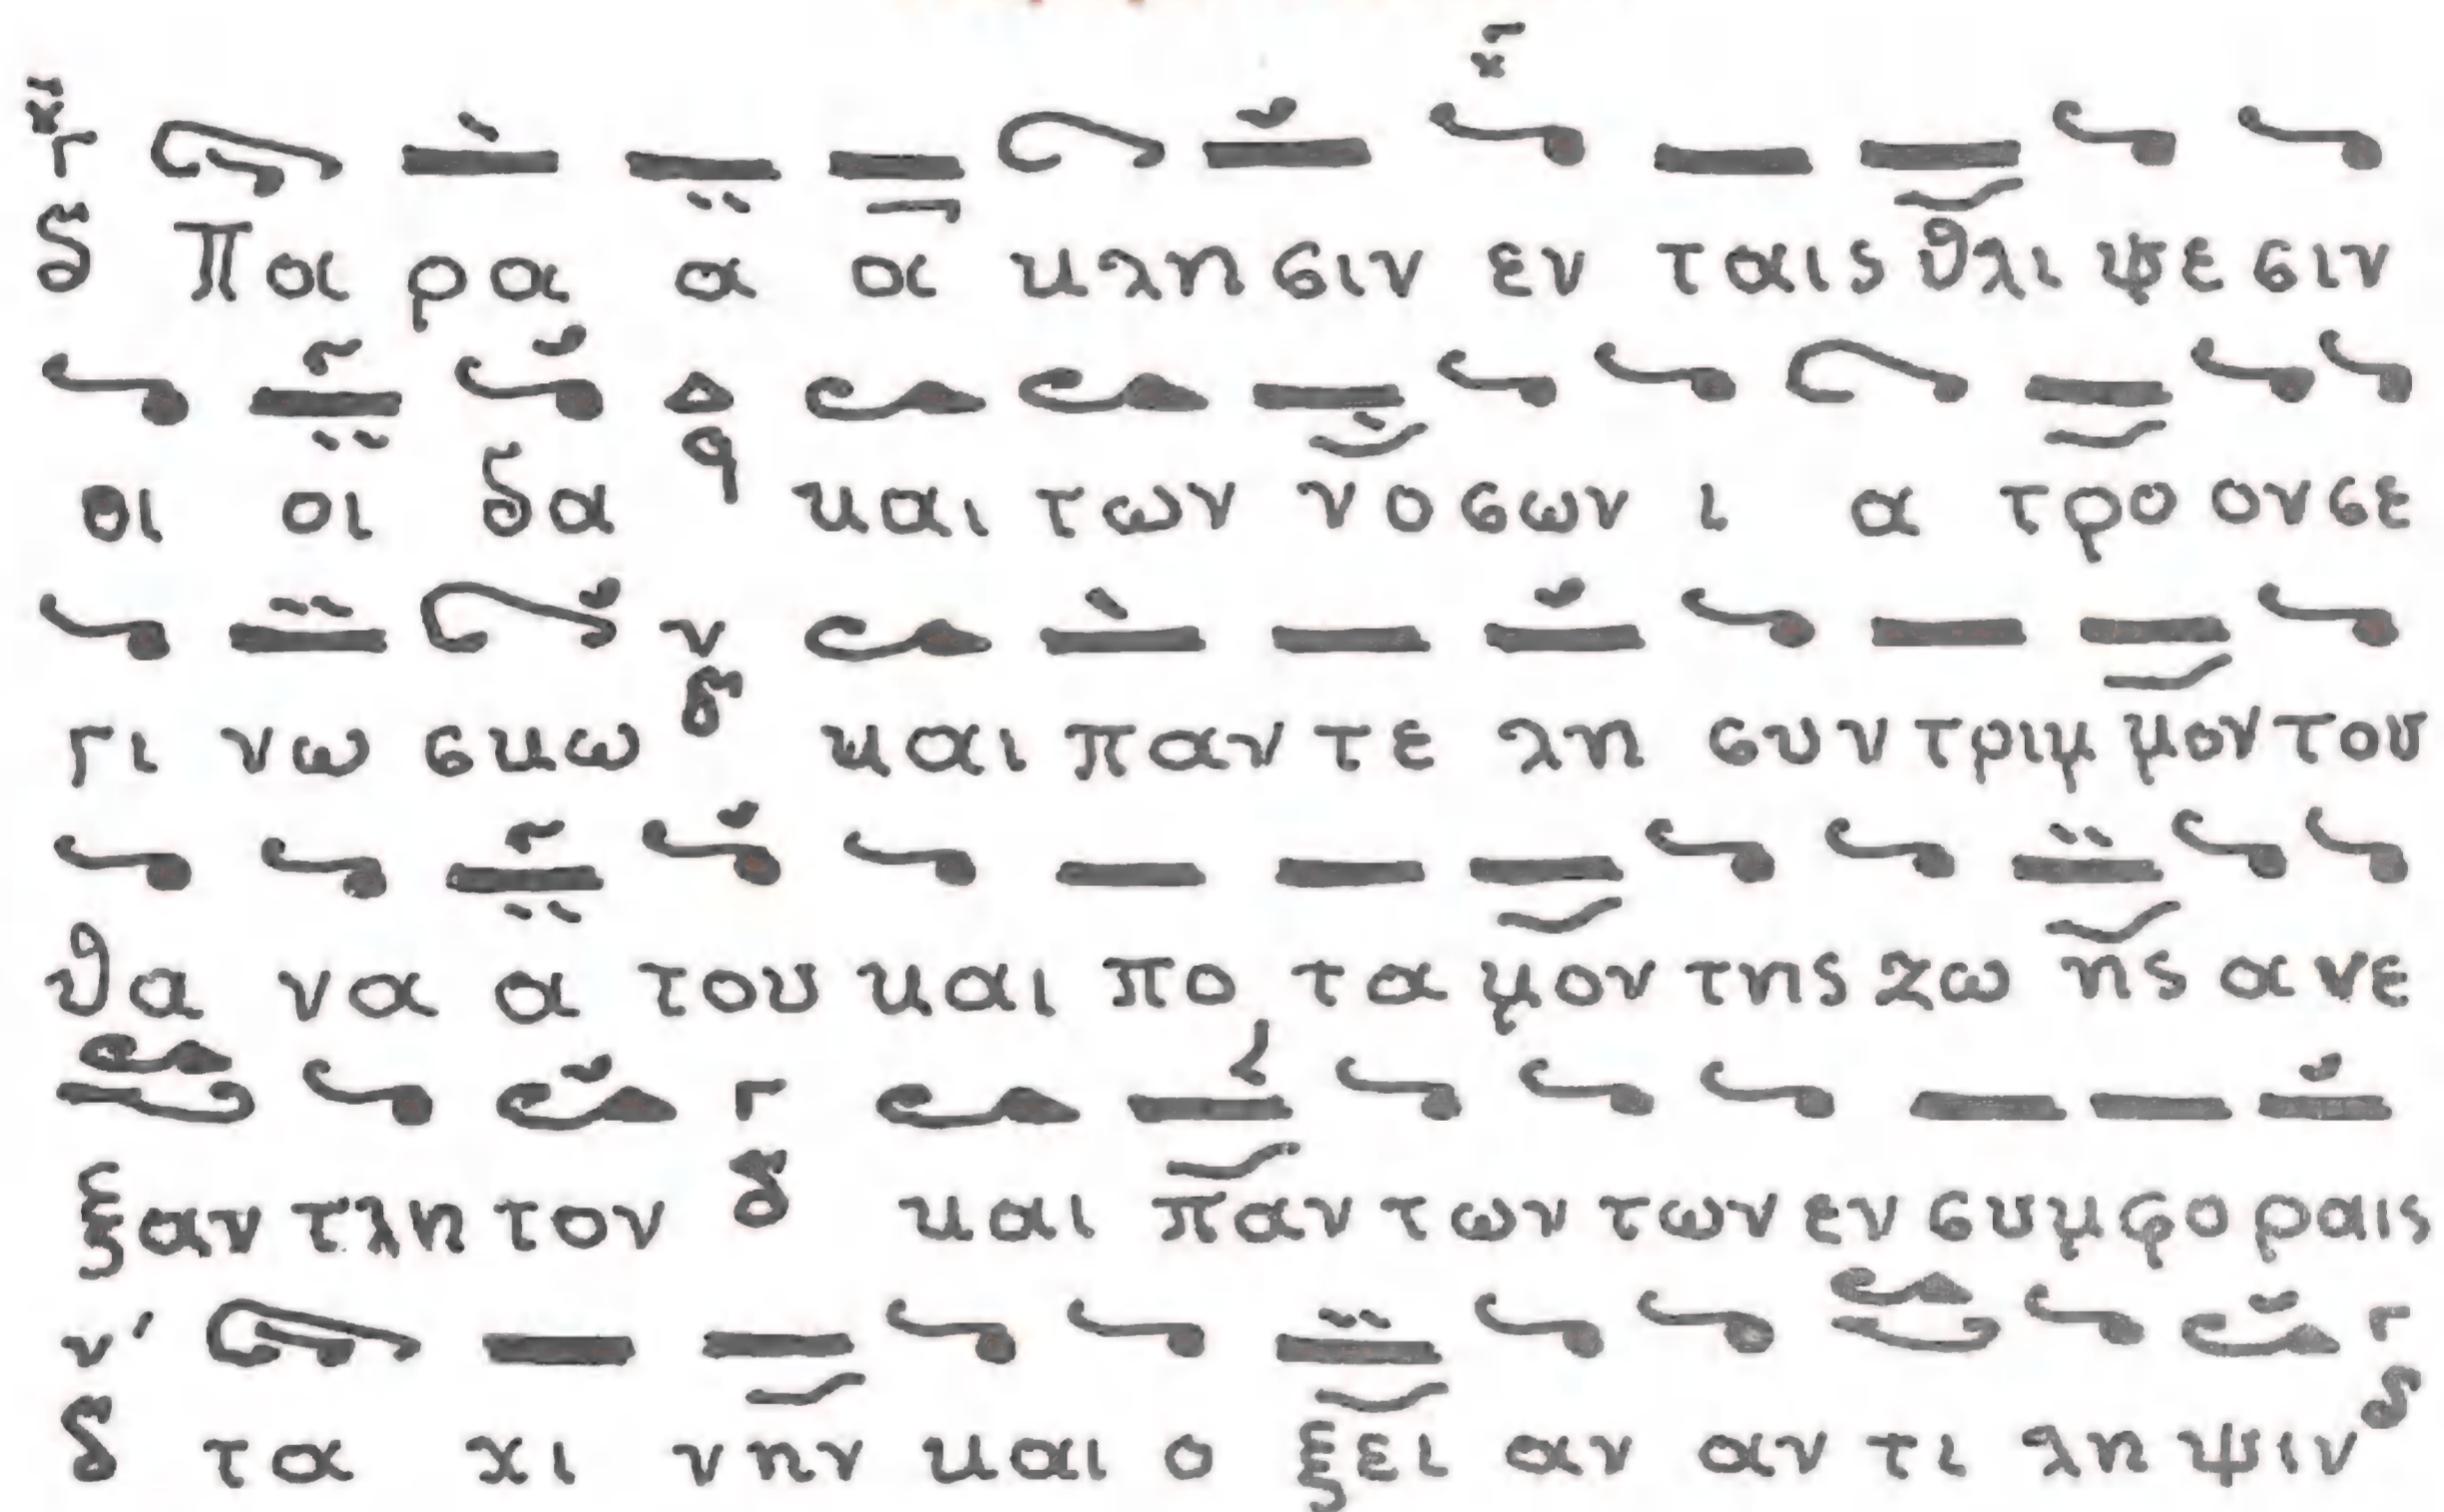 δ Πα ρα α α κλη σιν εν ταις θλι ψε σιν
οι οι δα q και των νο σων ι α τρο ον σε
γι νω σκω ν δ και παν τε λη συν τριμ μον του
θα να α του και πο τα μον της ζω ης α νε
ξαν τλη τον Γ δ και παν των των εν συμ φο ραις
ν' δ τα χι νην και ο ξει αν αν τι λη ψιν Γ δ